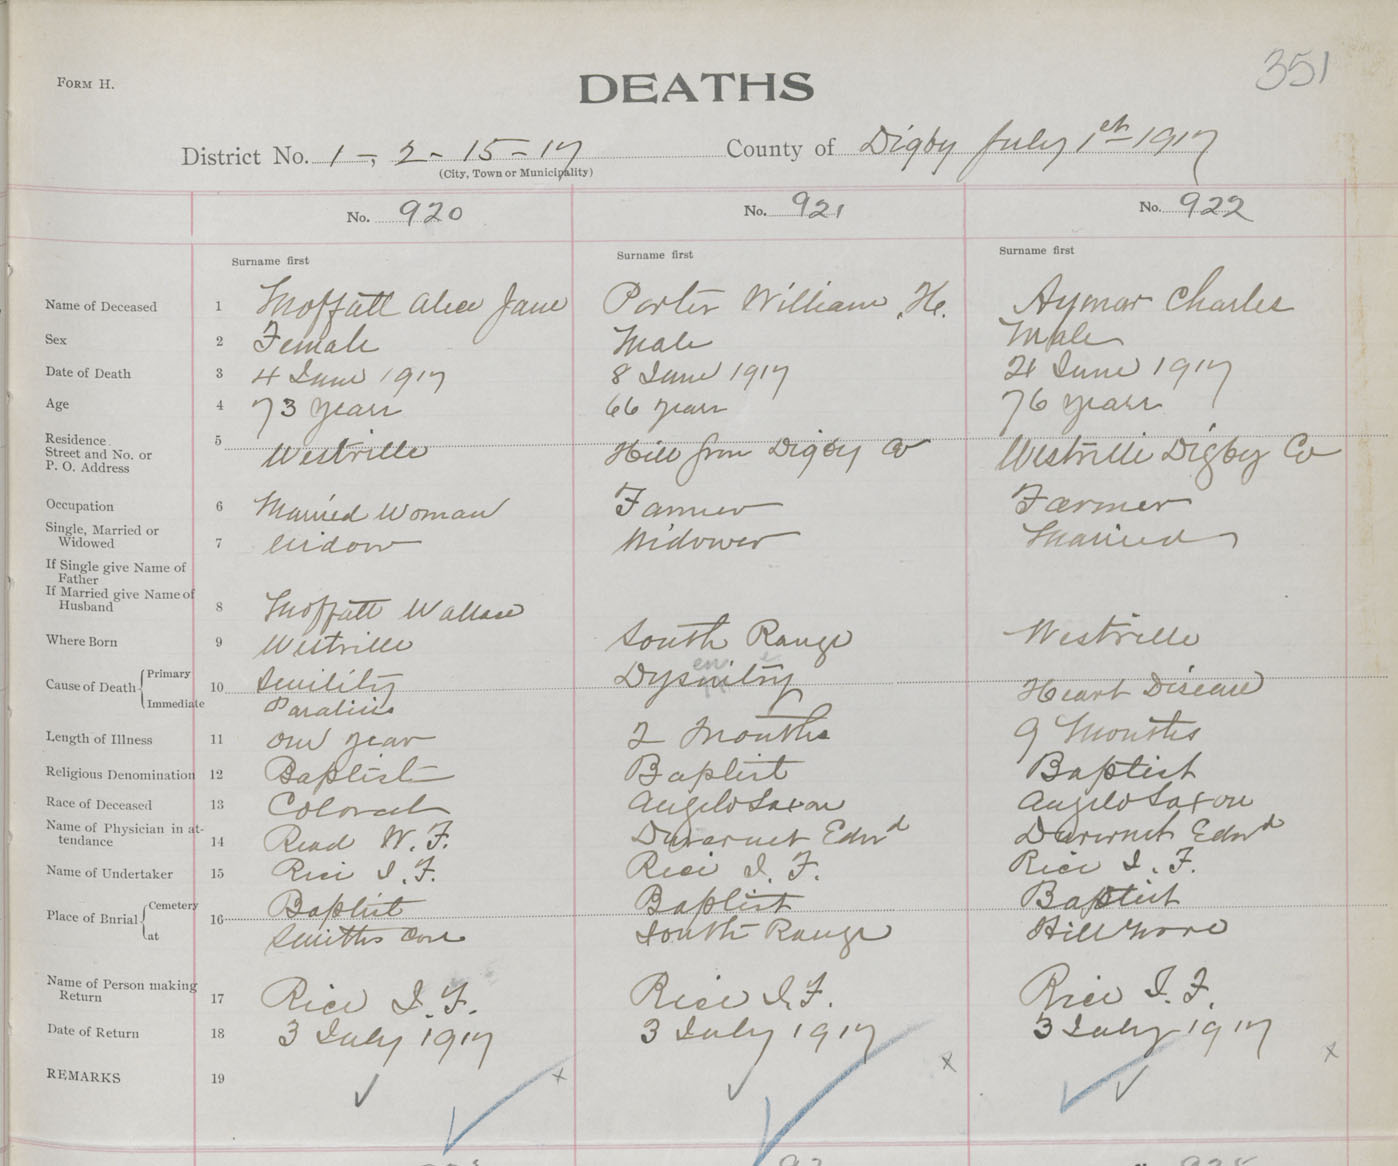 351
FORM H.
DEATHS
District No. 1-, 2- 15-17 County of Digby July 1st 1917
(City, Town or Municipality)
No. 920 No. 921 No. 922
Surname first Surname first Surname first
Name of Deceased 1 Moffatt Alice Jane Porter William H. Aymar Charles
Sex 2 Female Male Male
Date of Death 3 4 June 1917 8 June 1917 21 June 1917
Age 4 73 years 66 years 76 years
Residence Street and No. or P. O. Address 5 Westville Hill Grove Digby Co Westville Digby Co
Occupation 6 Married Woman Farmer Farmer
Single, Married or Widowed 7 Widow Widower Married
If Single give Name of Father
If Married give Name of Husband 8 Moffatt Wallace
Where Born 9 Westville South Range Westville
Cause of Death Primary 10 Senility Dysentry Heart Disease
Immediate Paralisis
Length of Illness 11 one year 2 Months 9 Months
Religious Denomination 12 Baptist Baptist Baptist
Race of Deceased 13 Colored Anglo Saxon Anglo Saxon
Name of Physician in attendance 14 Read W. F. Duvernet Edwd Duvernet Edwd
Name of Undertaker 15 Rice I. F. Rice I. F. Rice I. F.
Place of Burial Cemetery 16 Baptist Baptist Baptist
at Smiths Cove South Range Hill Grove
Name of Person making Return 17 Rice I. F. Rice I. F. Rice I. F.
Date of Return 18 3 July 1917 3 July 1917 3 July 1917
REMARKS 19